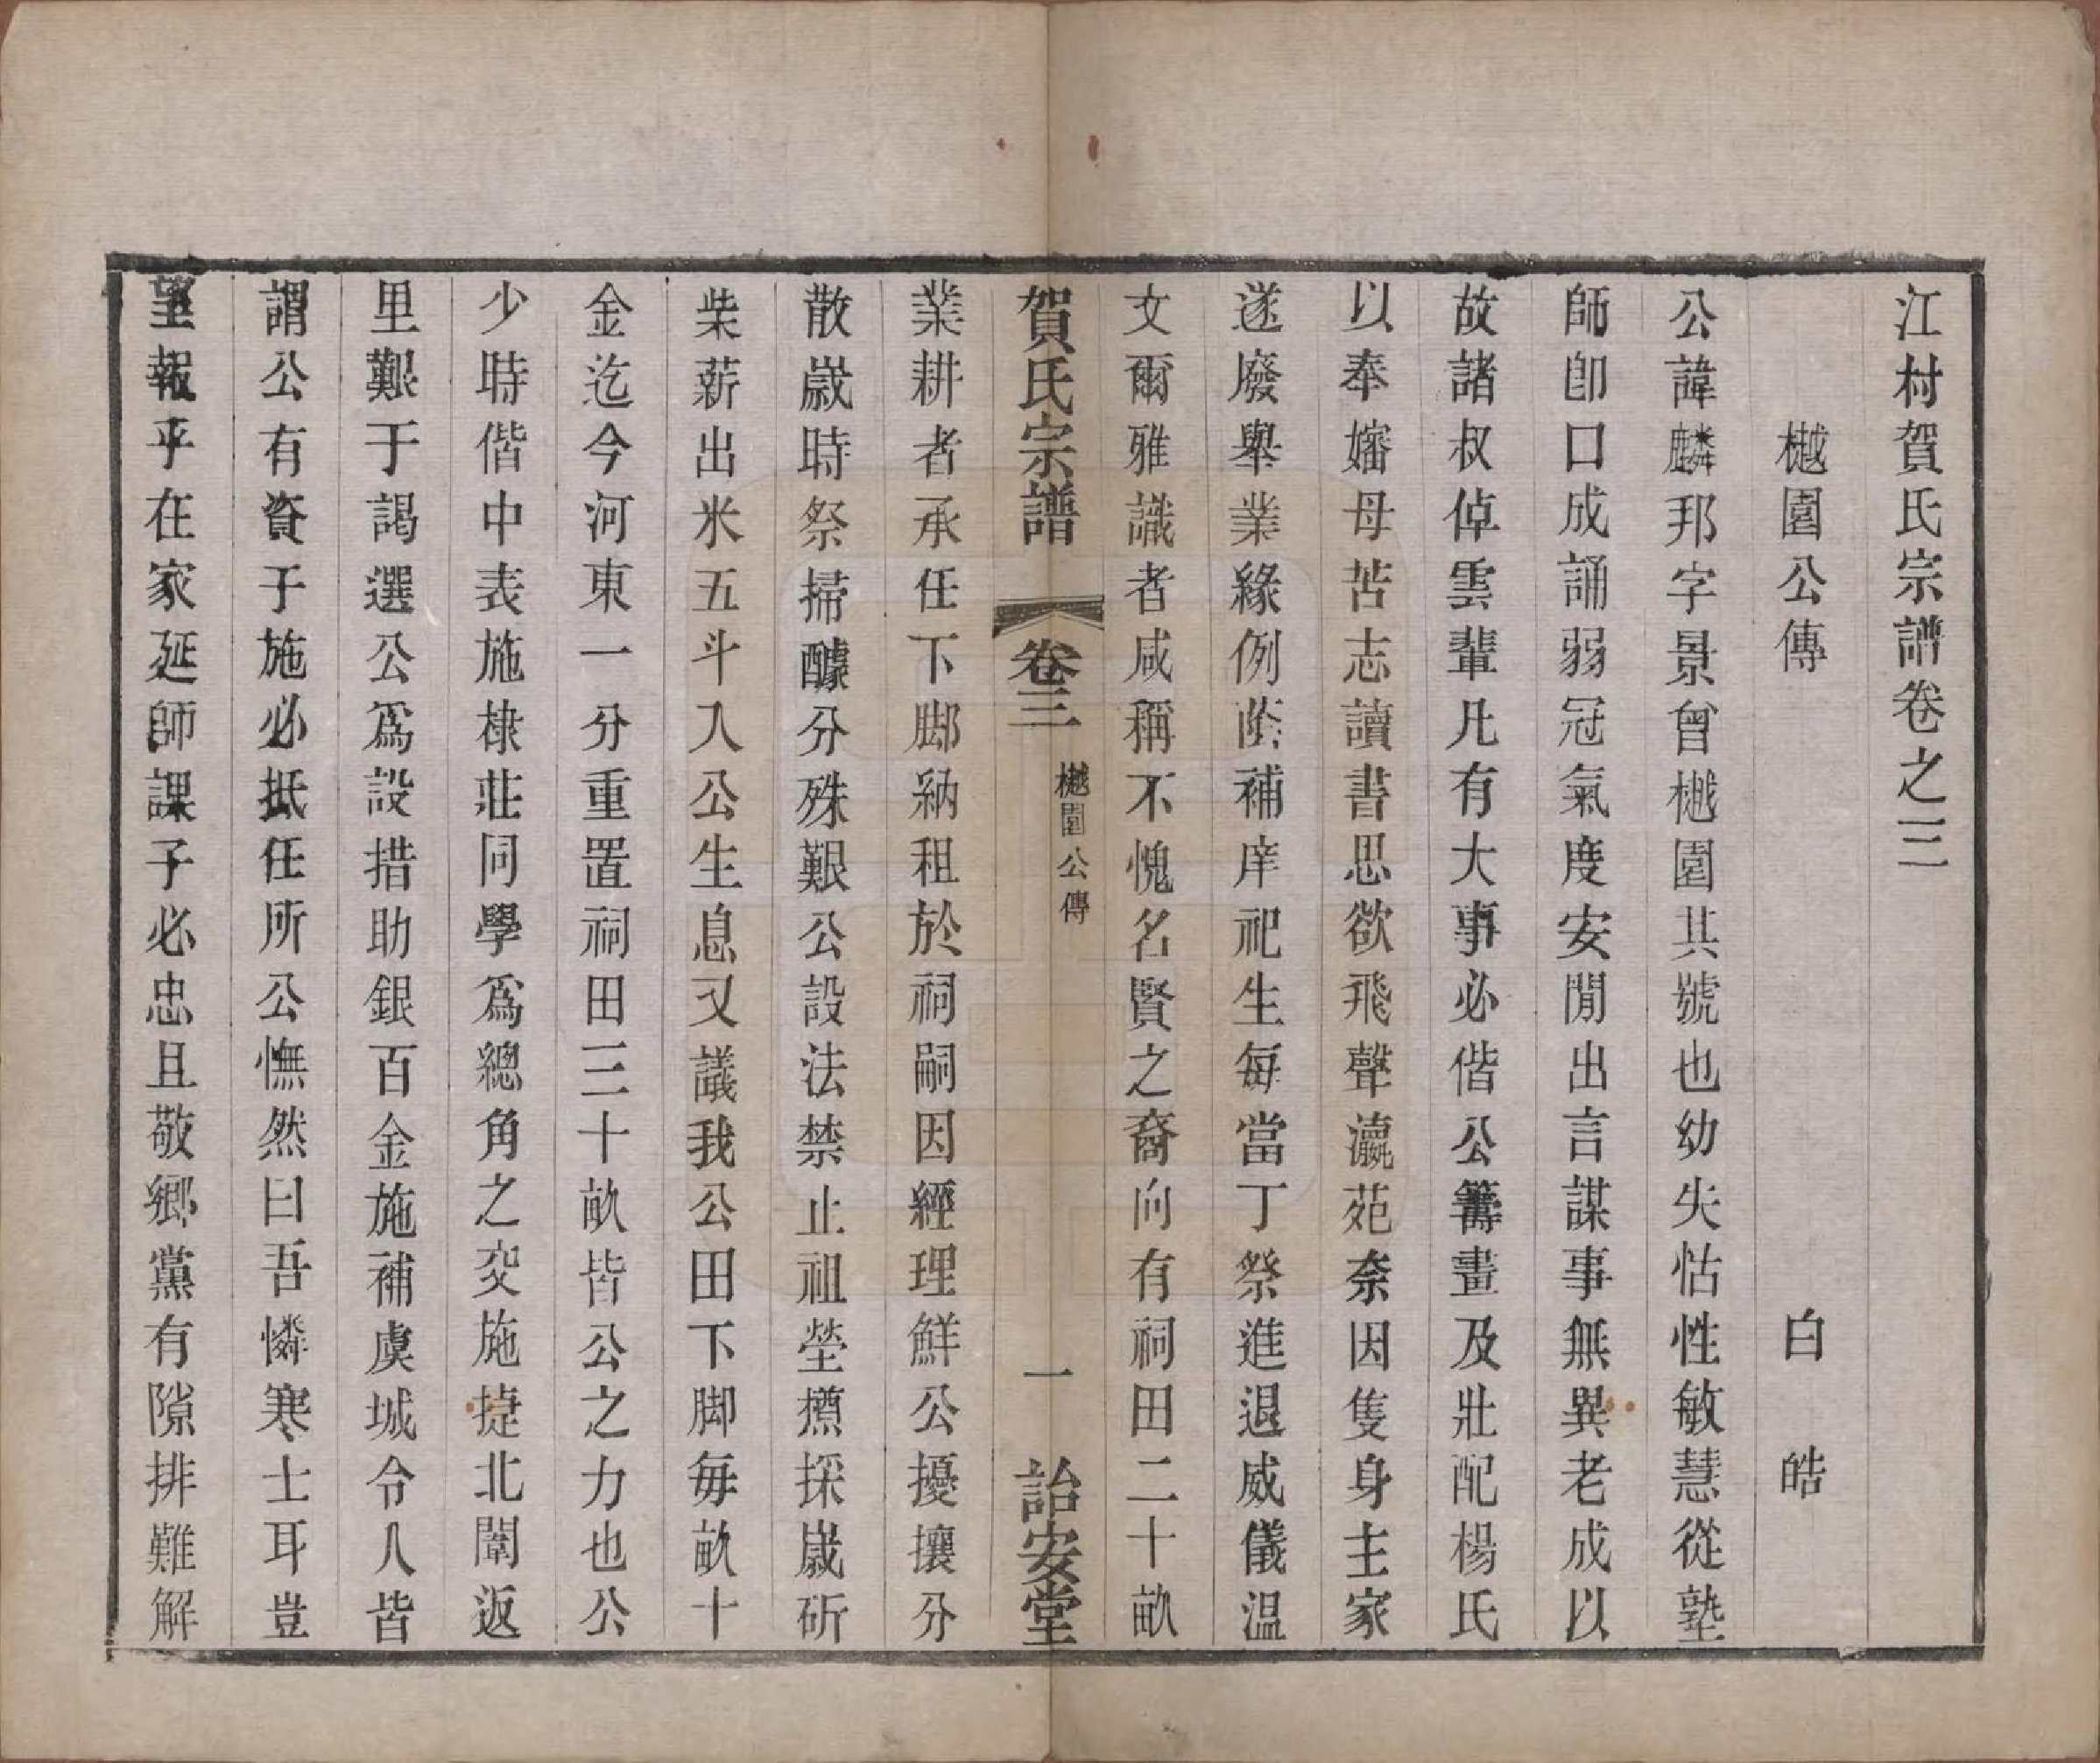 江村賀氏宗譜卷之三
樾園公傳　白　皓
公諱麟邦字景曾樾園其號也幼失怙性敏慧從塾
師卽口成誦弱冠氣度安閒出言謀事無異老成以
故諸叔倬雲輩凡有大事必偕公籌畫及壯配楊氏
以奉孀母苦志讀書思欲飛聲瀛苑奈因隻身主家
遂廢舉業緣例蔭補庠祀生每當丁祭進退威儀溫
文爾雅識者咸稱不愧名賢之裔向有祠田二十畝
賀氏宗譜　卷三　樾園公傳　一　詒安堂
業耕者承任下脚納租於祠嗣因經理鮮公擾攘分
散歲時祭掃醵分殊艱公設法禁止祖塋攢採歲斫
柴薪出米五斗入公生息又議我公田下脚每畝十
金迄今河東一分重置祠田三十畝皆公之力也公
少時偕中表施棣莊同學爲總角之交施捷北闈返
里艱于謁選公爲設措助銀百金施補虞城令人皆
謂公有資于施必抵任所公憮然曰吾憐寒士耳豈
望報乎在家延師課子必忠且敬鄉黨有隙排難解